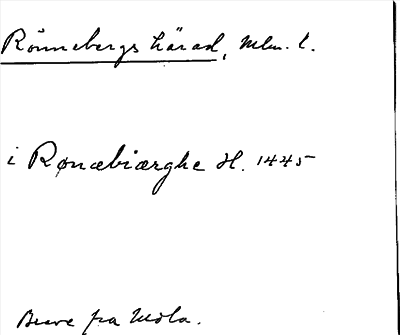 Rönnebergs härad, Mlm. l.
i Rønæbiærghe H. 1445
Breve fra Utdla.